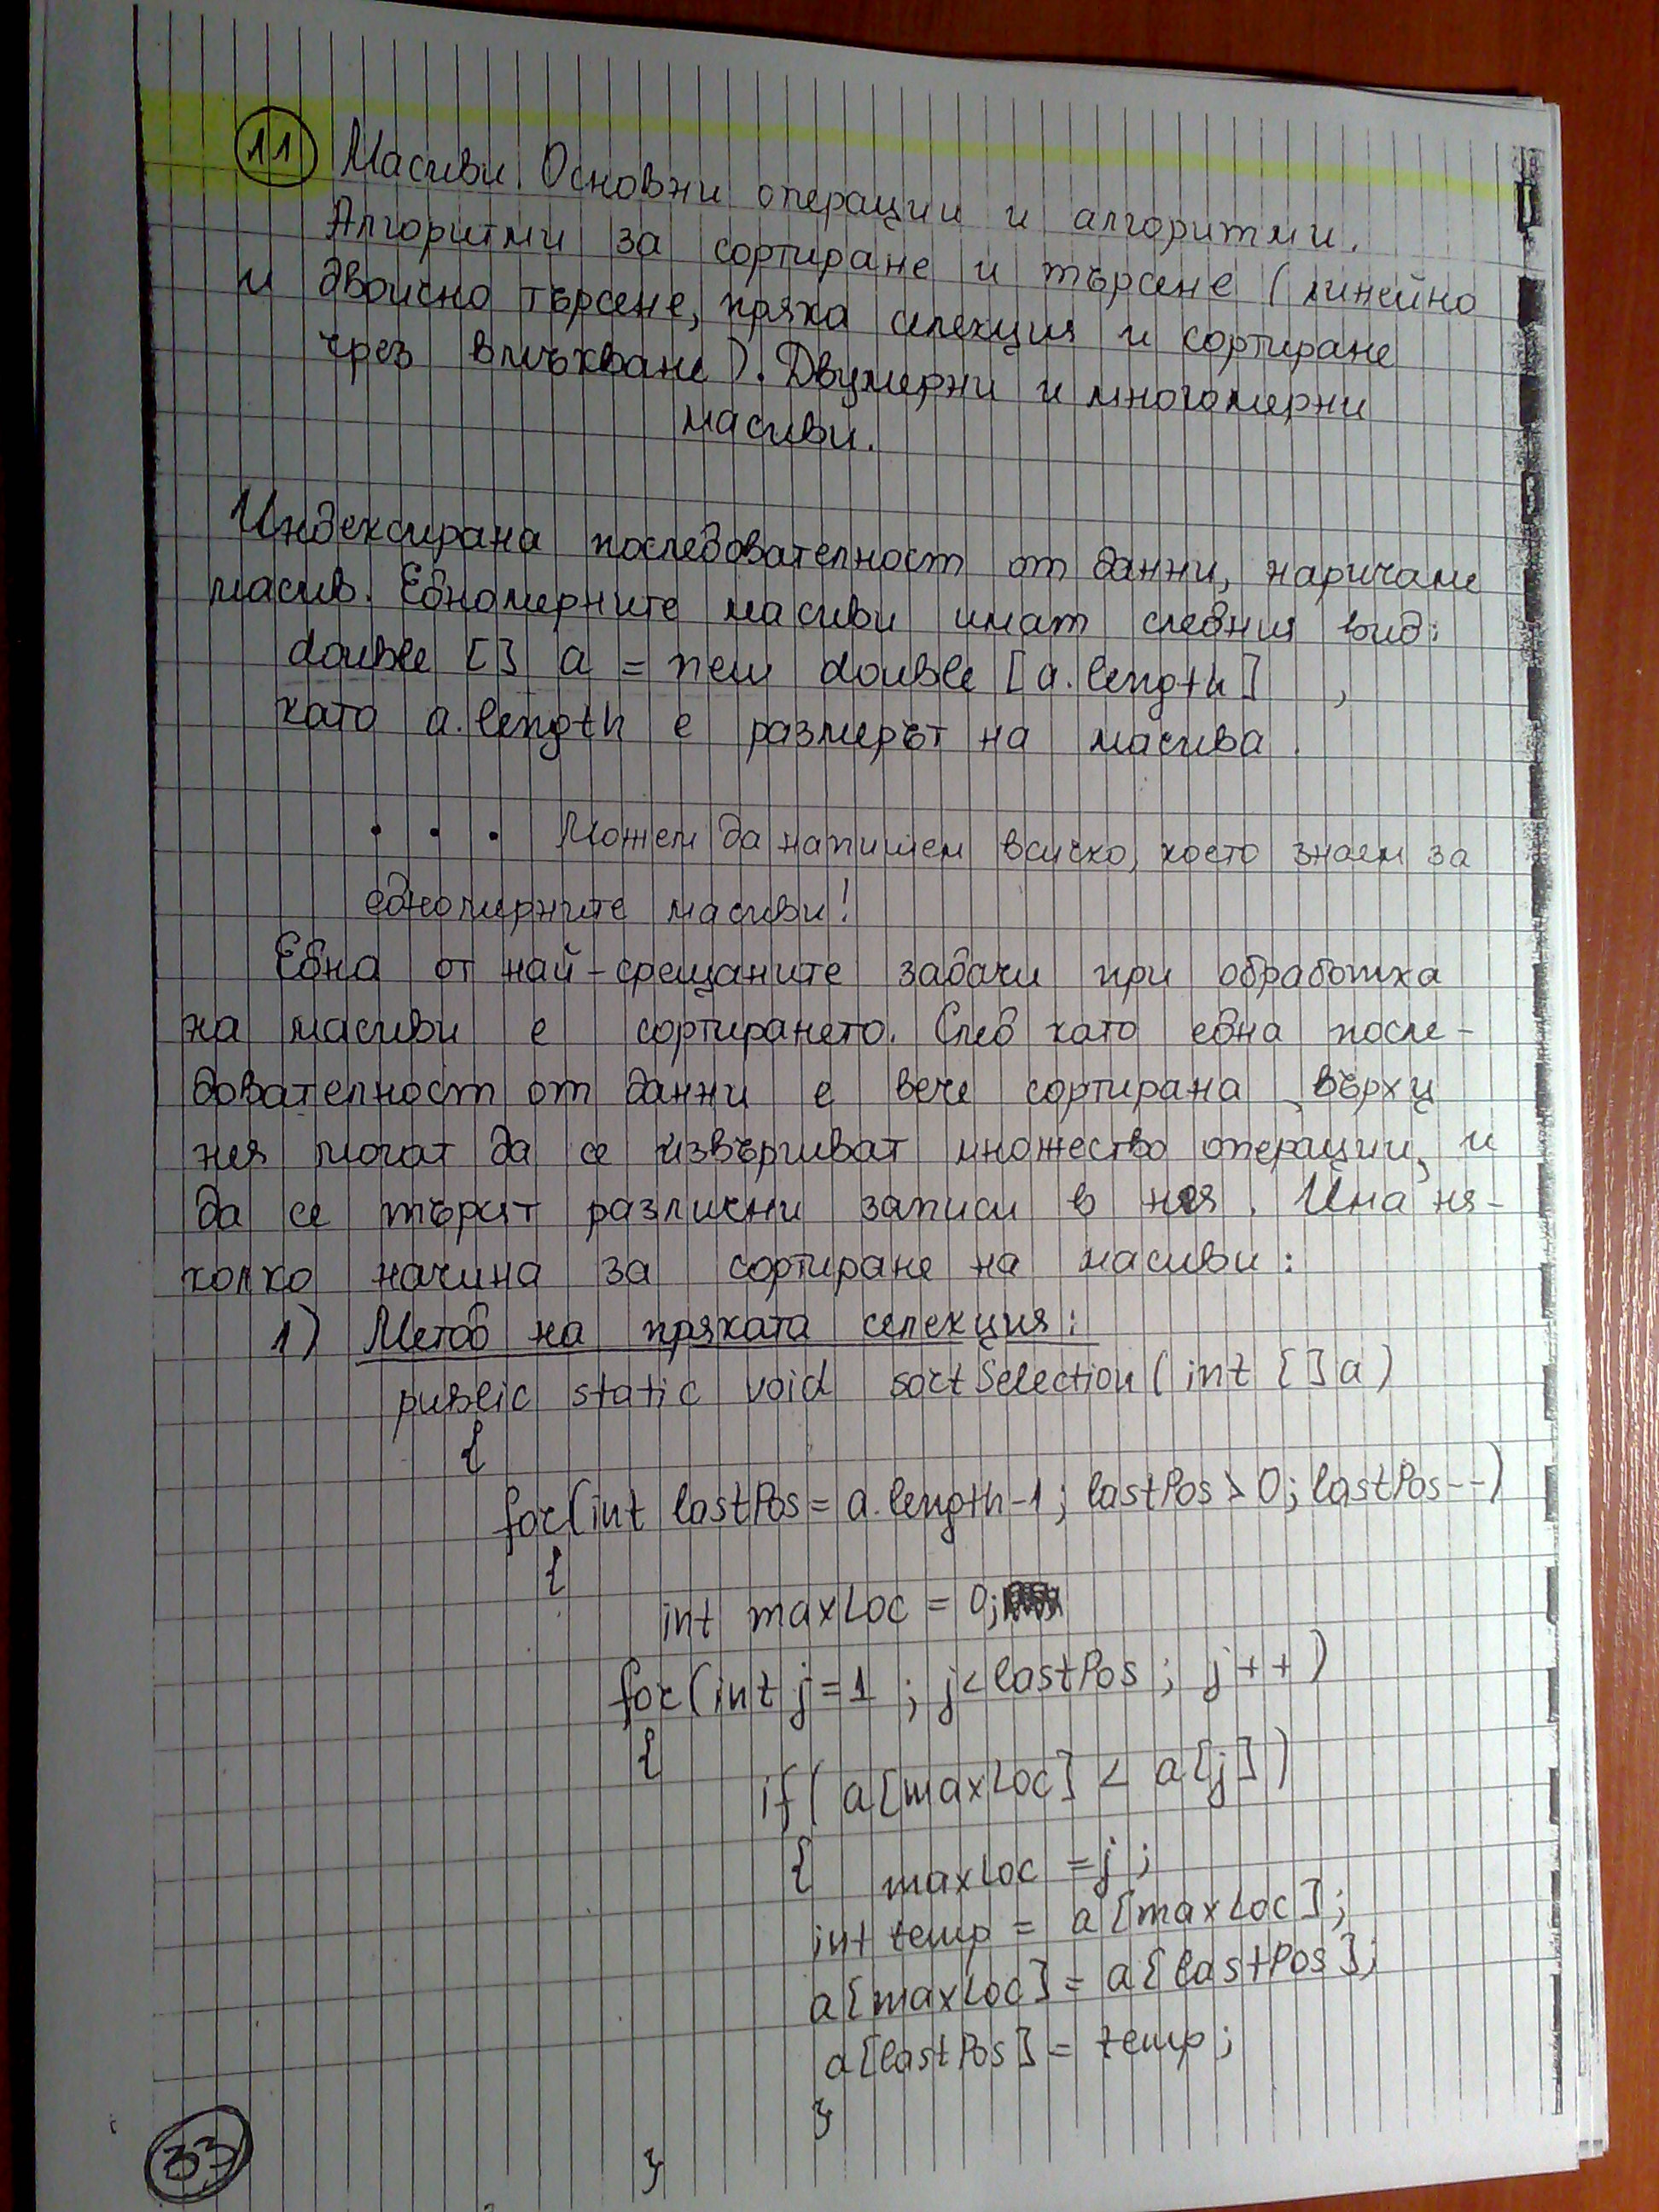 11 Масиви. Основни операции и алгоритми.
Алгоритми за сортиране и търсене (линейно
и двоично търсене, пряка селекция и сортиране
чрез вмъкване). Двумерни и многомерни
масиви.
Индексирана последователност от данни, наричаме
масив. Едномерните масиви имат следния вид:
double [] a = new double [a.length] ,
като a.length е размерът на масива.
. . . Можем да напишем всичко, което знаем за
едномерните масиви!
Една от най-срещаните задачи при обработка
на масиви е сортирането. След като една после-
дователност от данни е вече сортирана, върху
нея могат да се извършват множество операции, и
да се търсят различни записи в нея. Има ня-
колко начина за сортиране на масиви:
1) Метод на пряката селекция:
public static void sortSelection(int []a)
{
for(int lastPos = a.length-1; lastPos > 0; lastPos--)
{
int maxLoc = 0;
for(int j=1 ; j<lastPos ; j++)
{
if( a[maxLoc] < a[j])
{ maxLoc = j ;
int temp = a[maxLoc];
a[maxLoc] = a[lastPos];
a[lastPos] = temp;
}
}
33